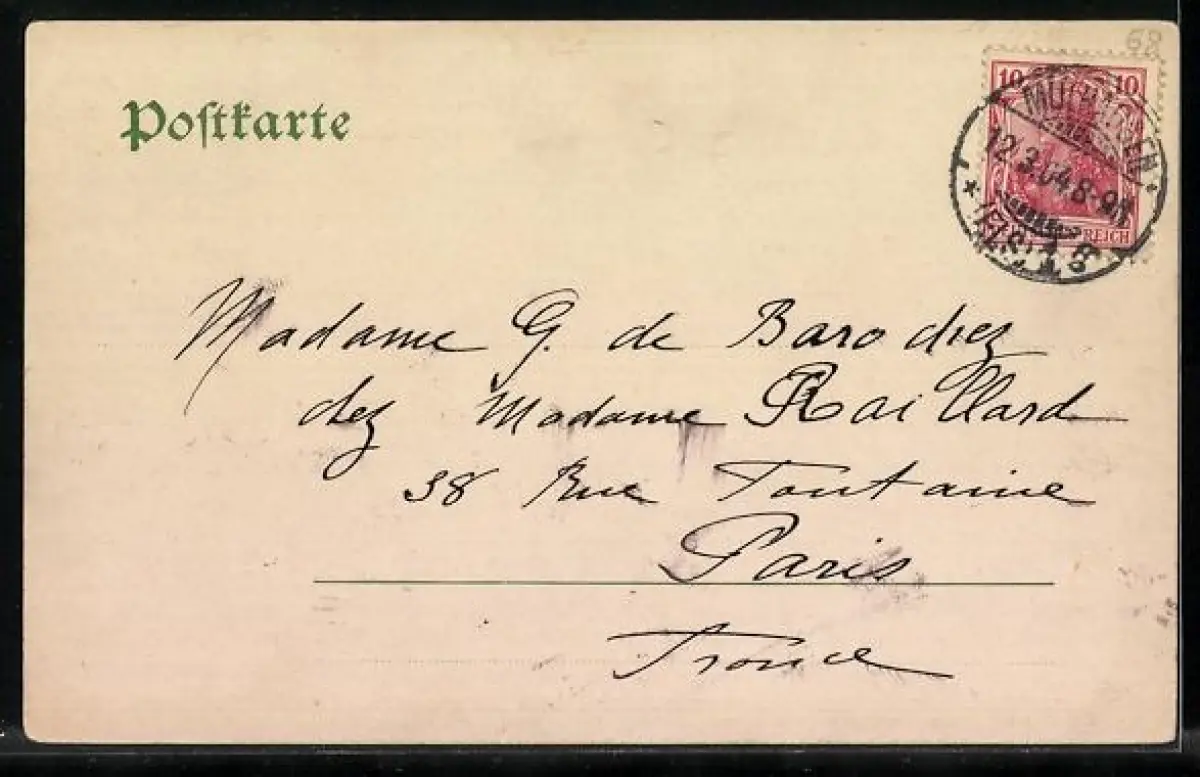 68
Postkarte
10 10
MÜLHAUSEN
12.3.04.8-9N
(ELS.)
REICH
Madame G. de Barochez
chez Madame Raillard
38 Rue Fontaine
Paris
France